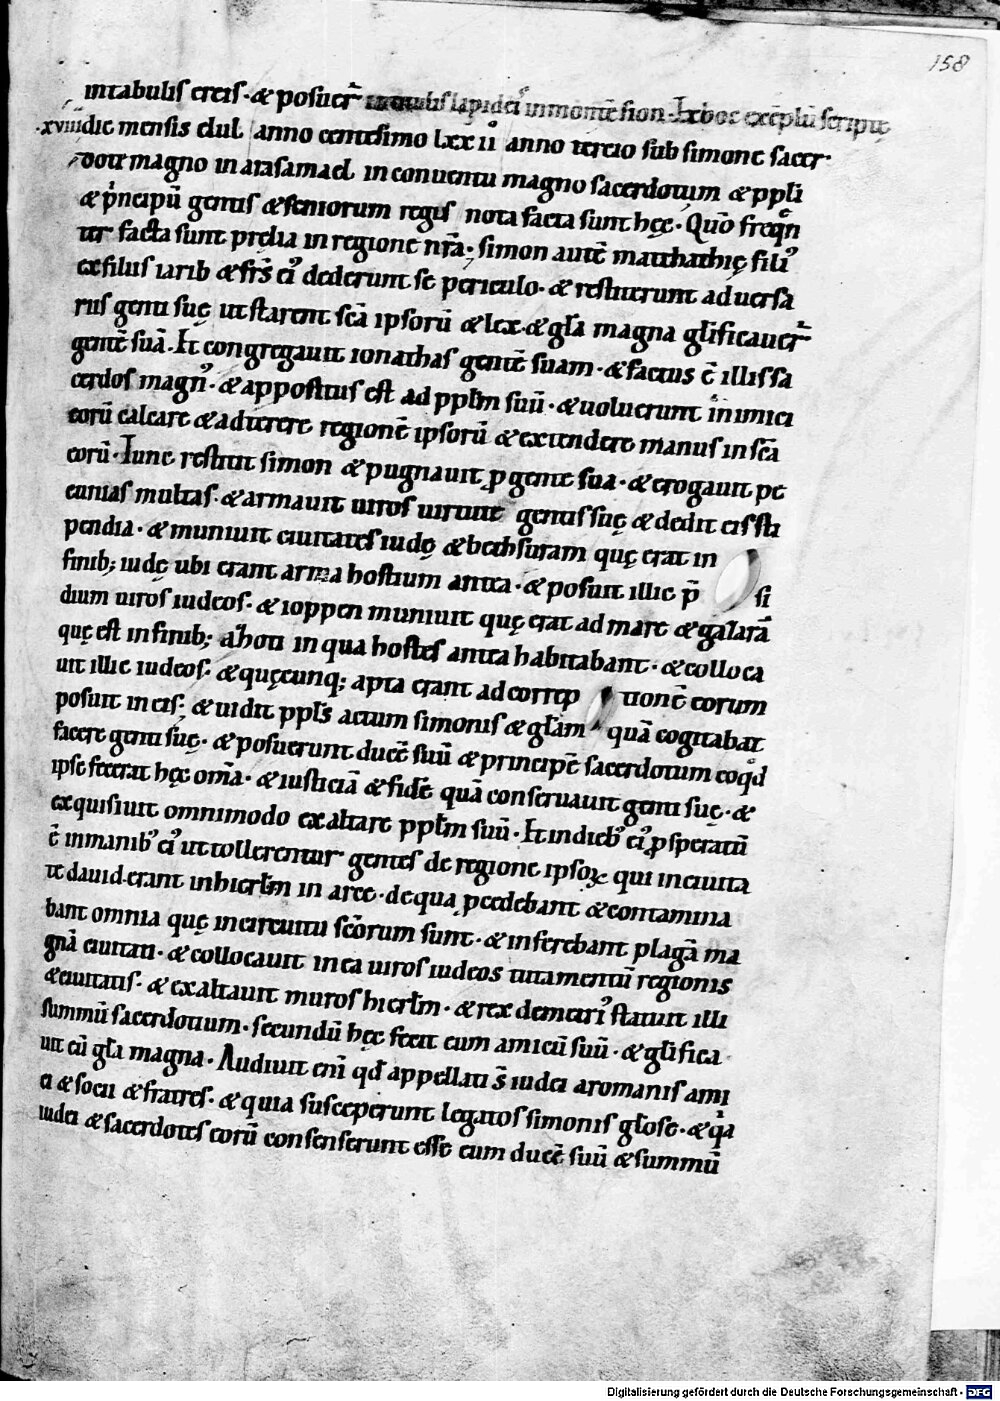 158
intabulis ereis · & posuer̄ in titulis lapideis in monte sion · Et hoc exēplū scripture
·xviii die mensis elul anno centesimo lxx ii anno tercio sub simone sacer
dote magno in arasamael in conuentu magno sacerdotum & ppl̄i
& p̄ncipū gentis & seniorum regis nota facta sunt hęc · Quō freqn̄
ter facta sunt prelia in regione nr̄a; simon autē matthathię filiꝰ
ex filiis iarib & frs̄ eiꝰ dederunt se periculo · & restiterunt aduersa
riis genti suę ut starent scā ipsorū & lex · & gl̄a magna gl̄ificauer̄
gentē suā · Et congregauit ionathas gentē suam · & factus ē illis sa
cerdos magnꝰ · & appositus est ad ppl̄m suū · & uoluerunt inimici
eorū calcare & adterere regionē ipsorū & extendere manus in scā
eorū · Tunc restitit simon & pugnauit ꝓ gente sua · & erogauit pe
cunias multas · & armauit uiros uirtute gentis suę & dedit eis sti
pendia · & muniuit ciuitates iudę & bethsuram quę erat in
finib; iudę ubi erant arma hostium antea · & posuit illic p̄ si
dium uiros iudeos · & ioppen muniuit quę erat ad mare & gazarā
quę est in finib; azoti in qua hostes antea habitabant · & colloca
uit illic iudeos · & quęcunq; apta erant ad correp tionē eorum
posuit in eis; & uidit ppl̄s actum simonis & gl̄am quā cogitabat
facere genti suę · & posuerunt ducē suū & principē sacerdotum eo qd̄
ipse fecerat hęc om̄a · & iusticiā & fidē quā conseruauit genti suę · &
exquisiuit omnimodo exaltare ppl̄m suū · Et in diebꝰ eiꝰ ꝓsperatū
ē in manibꝰ eiꝰ ut tollerentur gentes de regione ipsoꝝ qui in ciuita
te dauid erant in hierl̄m in arce · de qua ꝓcedebant & contamina
bant omnia quę in circuitu scōrum sunt · & inferebant plagā ma
gnā ciuitati · & collocauit in ea uiros iudeos tutamentū regionis
& ciuitatis · & exaltauit muros hierl̄m · & rex demetriꝰ statuit illi
summū sacerdotium · secundū hęc fecit eum amicū suū · & gl̄ifica
uit eū gl̄a magna · Audiuit eni qd̄ appellati s̄ iudei a romanis ami
ci & socii & fratres · & quia susceperunt legatos simonis gl̄ose · & qa
iudei & sacerdotes eorū consenserunt esse eum ducē suū & summū
Digitalisierung gefördert durch die Deutsche Forschungsgemeinschaft - DFG